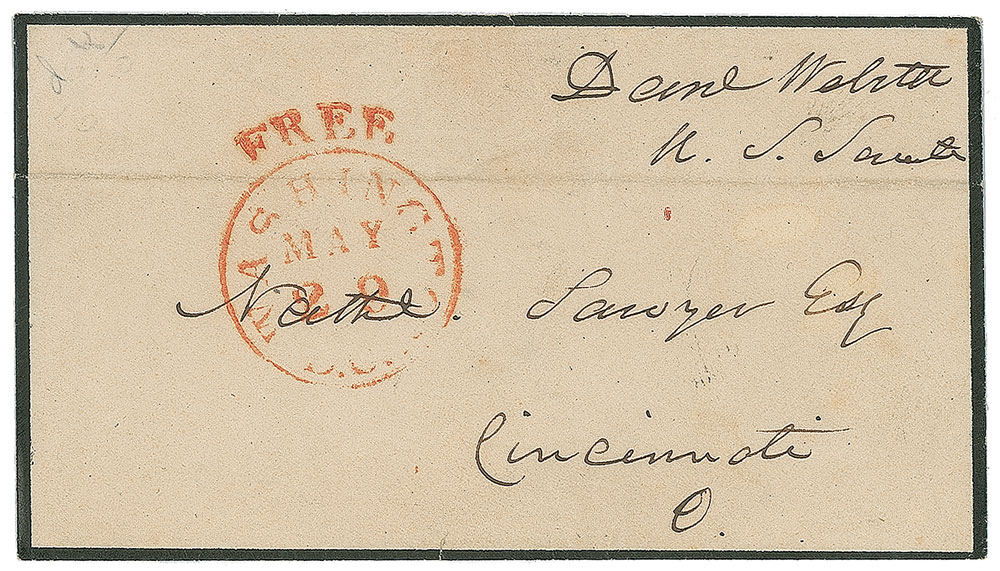 Danl Webster
U. S. Senate
FREE
WASHINGTON
MAY
29
D.C.
Nathl. Sawyer Esq
Cincinnati
O.